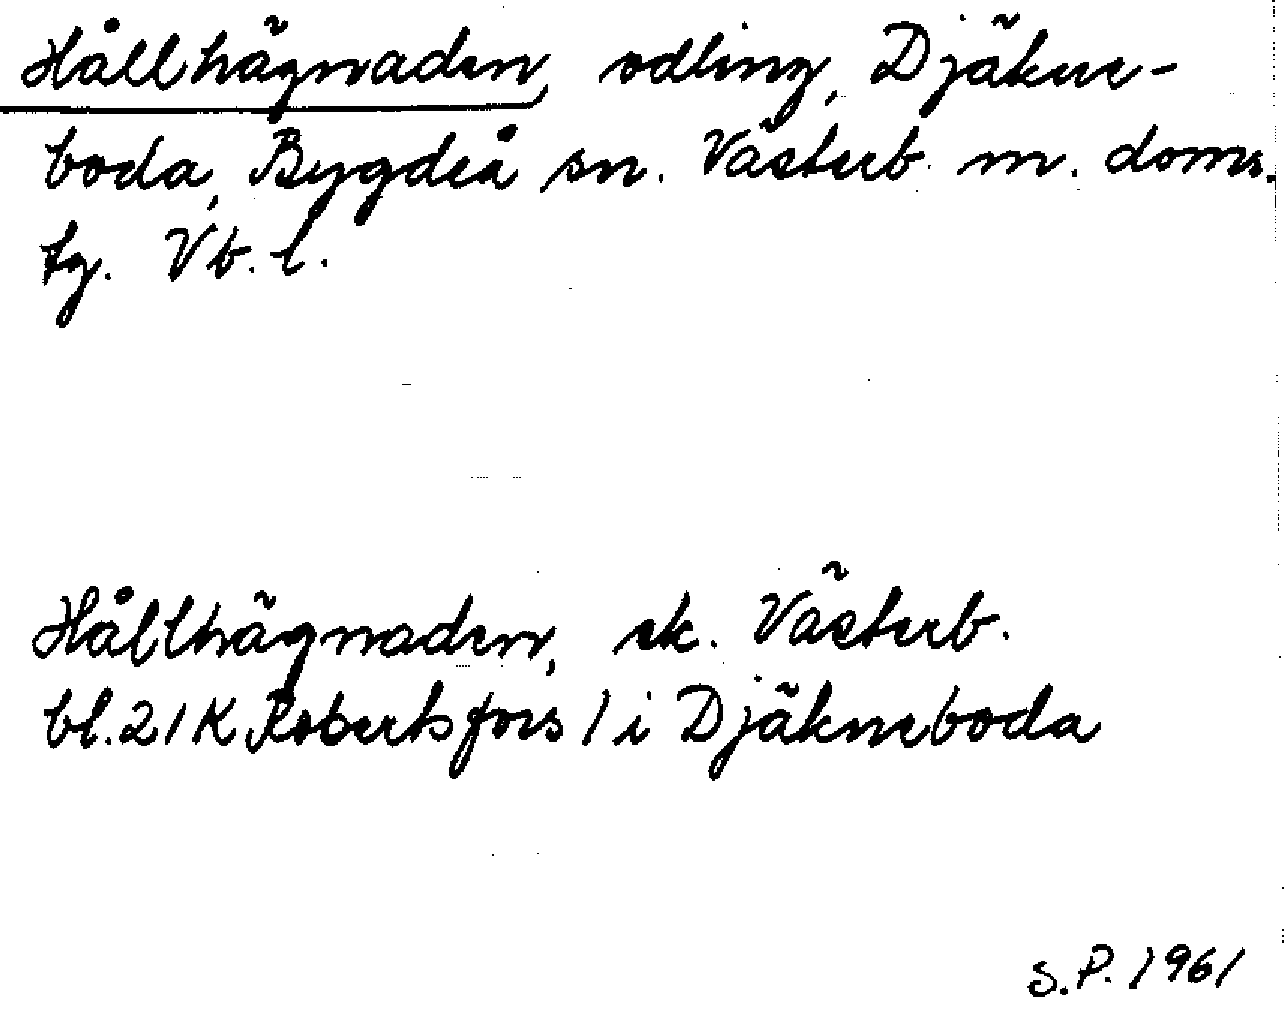 Hållhägnaden, odling, Djäkne-
boda, Bygdeå sn. Västerb. m. doms.
tg. Vb. l.
Hållhägnaden, ek. Västerb.
bl. 21 K Robertsfors / i Djäkneboda
S.P. 1961